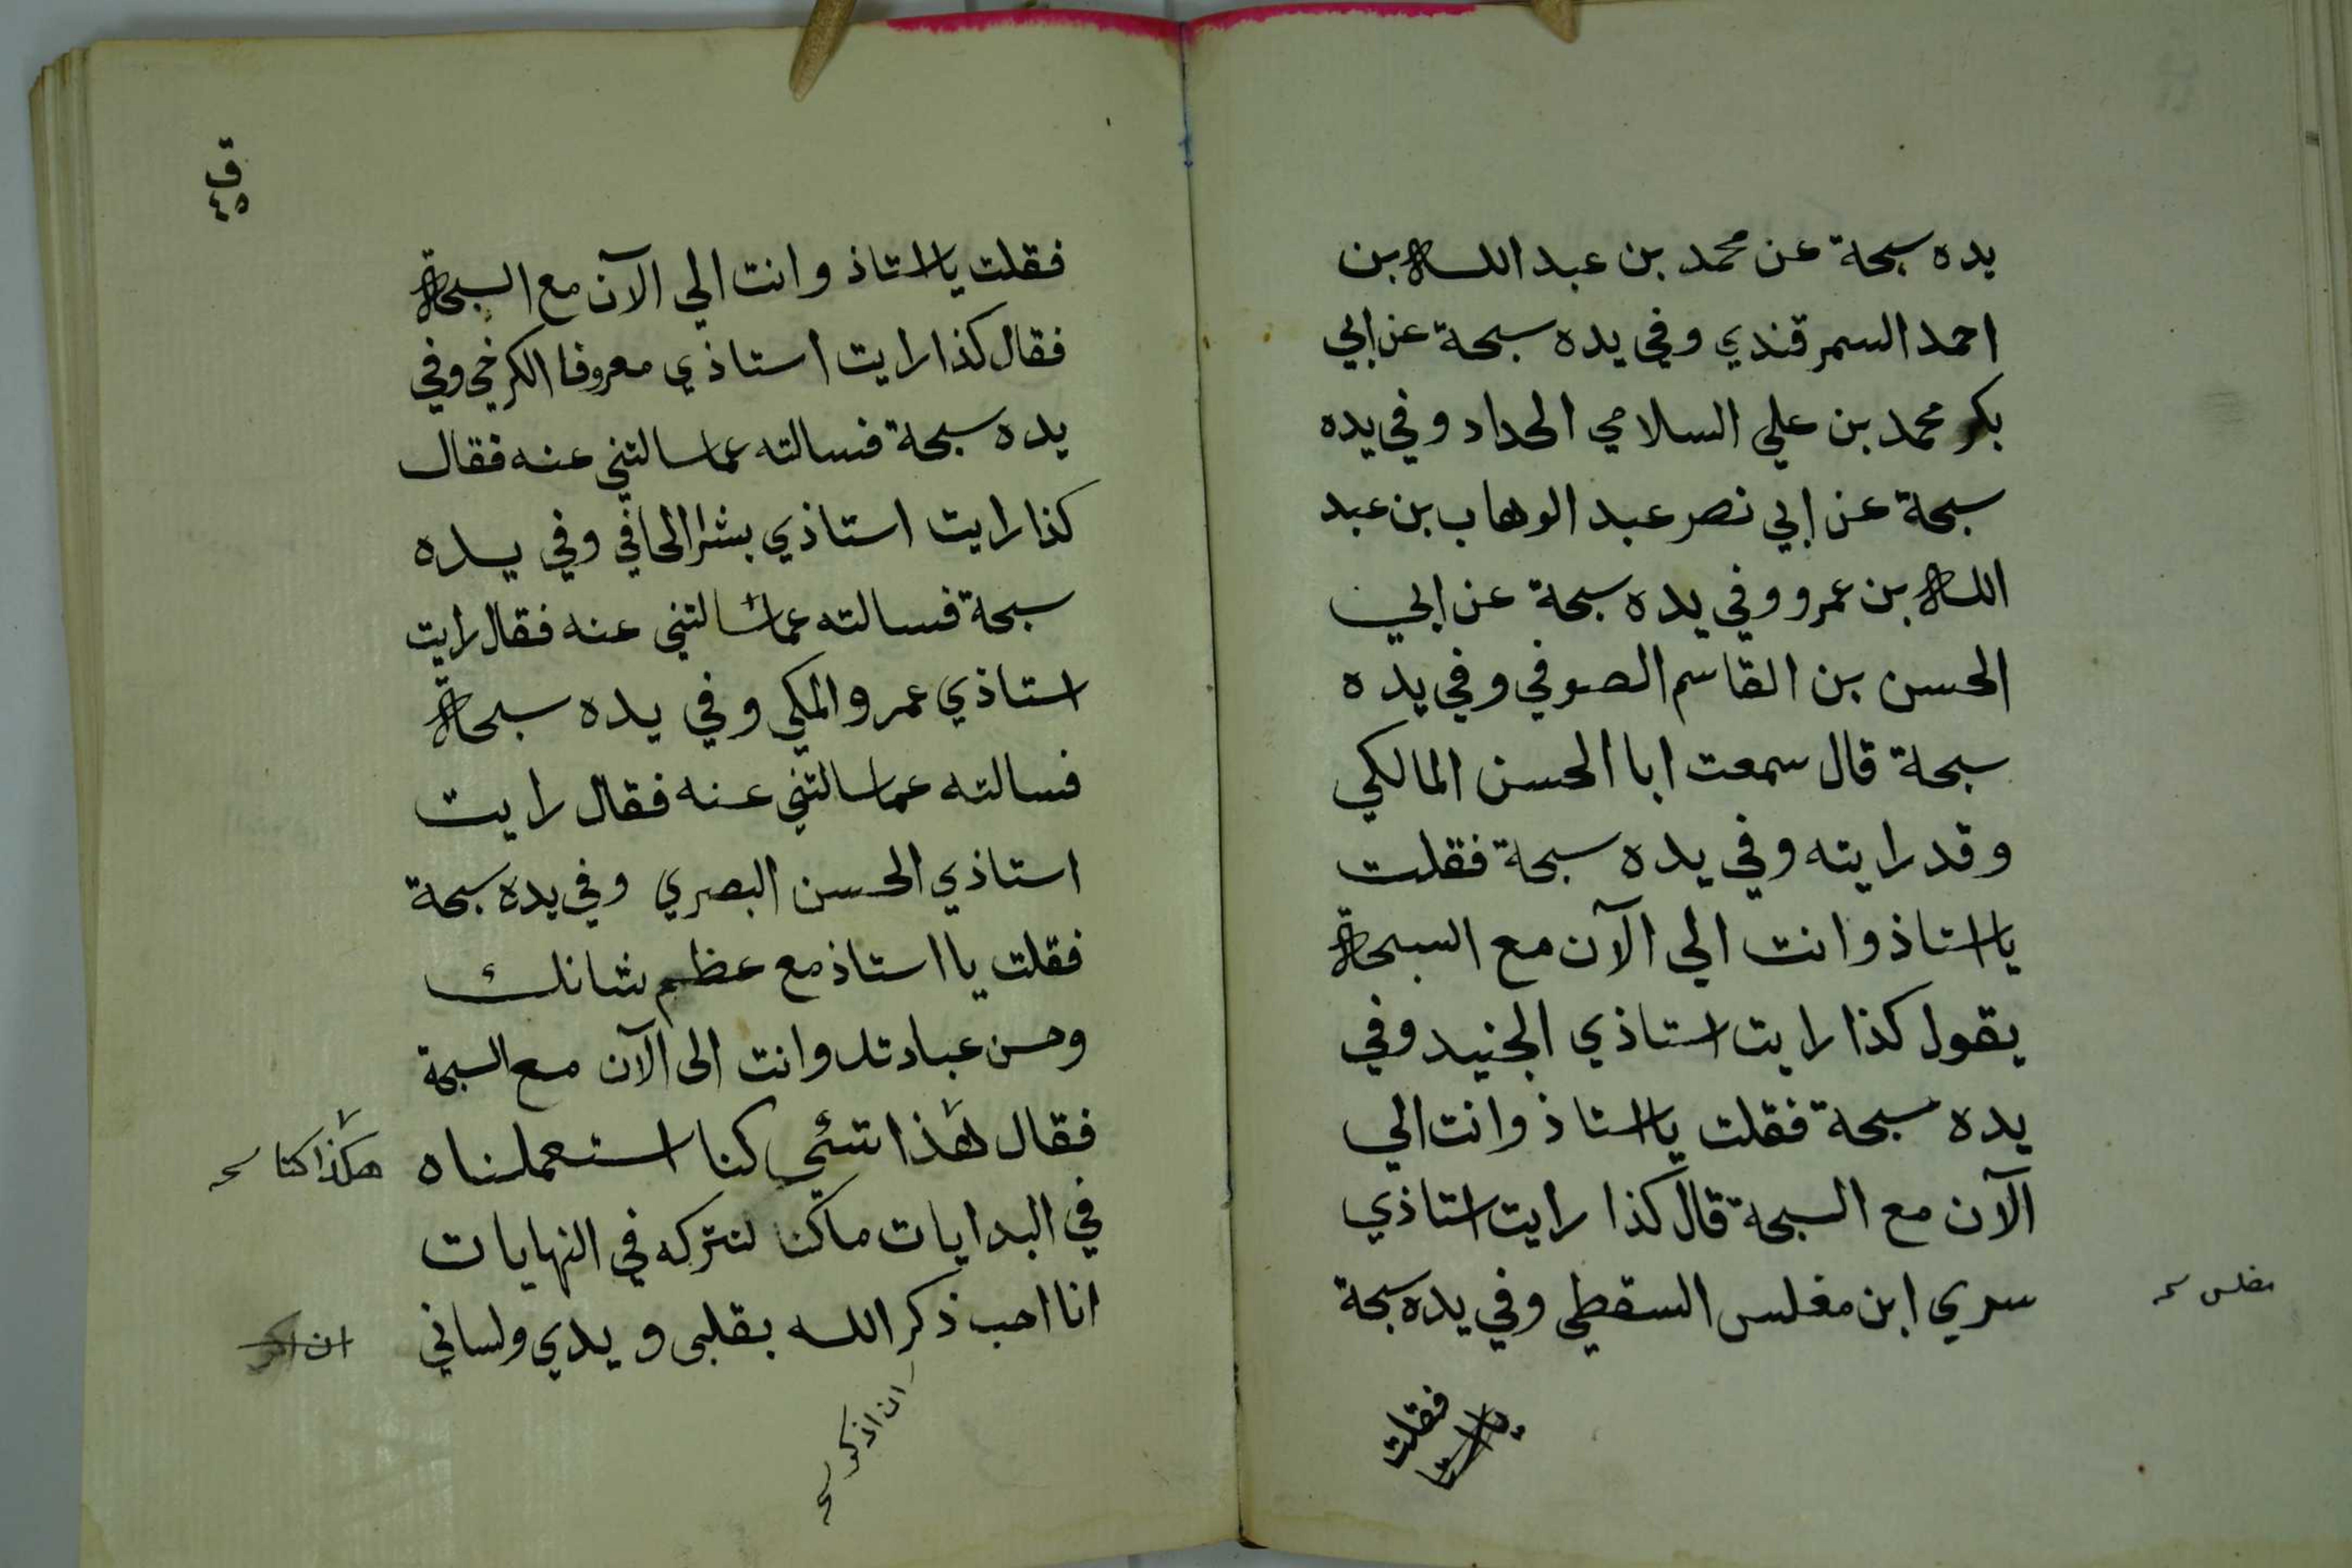 يده سبحة عن محمد بن عبد الله بن
احمد السمرقندي وفي يده سبحة عن ابي
بكر محمد بن علي السلامي الحداد وفي يده
سبحة عن ابي نصر عبد الوهاب بن عبد
الله بن عمرو وفي يده سبحة عن ابي
الحسن بن القاسم الصوفي وفي يده
سبحة قال سمعت ابا الحسن المالكي
وقد رايته وفي يده سبحة فقلت
يا استاذ وانت الي الآن مع السبحة
يقول كذا رايت استاذي الجنيد وفي
يده سبحة فقلت يا استاذ وانت الي
الآن مع السبحة قال كذا رايت استاذي
سري ابن مغلس السقطي وفي يده سبحة
مغلس
فقلت
يا استا
ق
٤٥
فقلت يا استاذ وانت الي الآن مع السبحة
فقال كذا رايت استاذي معروفا الكرخي وفي
يده سبحة فسالته عما سالتني عنه فقال
كذا رايت استاذي بشرا الحافي وفي يده
سبحة فسالته عما سالتني عنه فقال رايت
استاذي عمرو المكي وفي يده سبحة
فسالته عما سالتني عنه فقال رايت
استاذي الحسن البصري وفي يده سبحة
فقلت يا استاذ مع عظم شانك
وحسن عبادتك وانت الى الآن مع السبحة
فقال هذا شئي كنا استعملناه
هكذا كنا
في البدايات ما كنا لنتركه في النهايات
انا احب ذكر الله بقلبي و يدي ولساني
ان اذكر